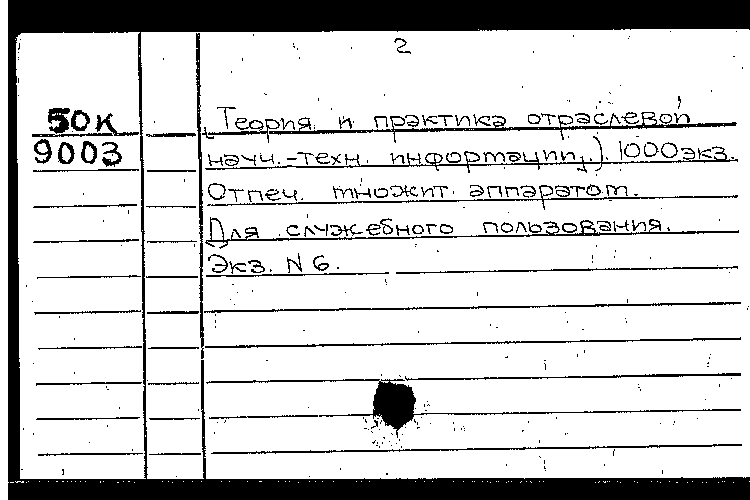 2
50К Теория и практика отраслевой
9003 науч.-техн. информации). 1000 экз.
Отпеч. множит. аппаратом.
Для служебного пользования.
Экз. N 6.